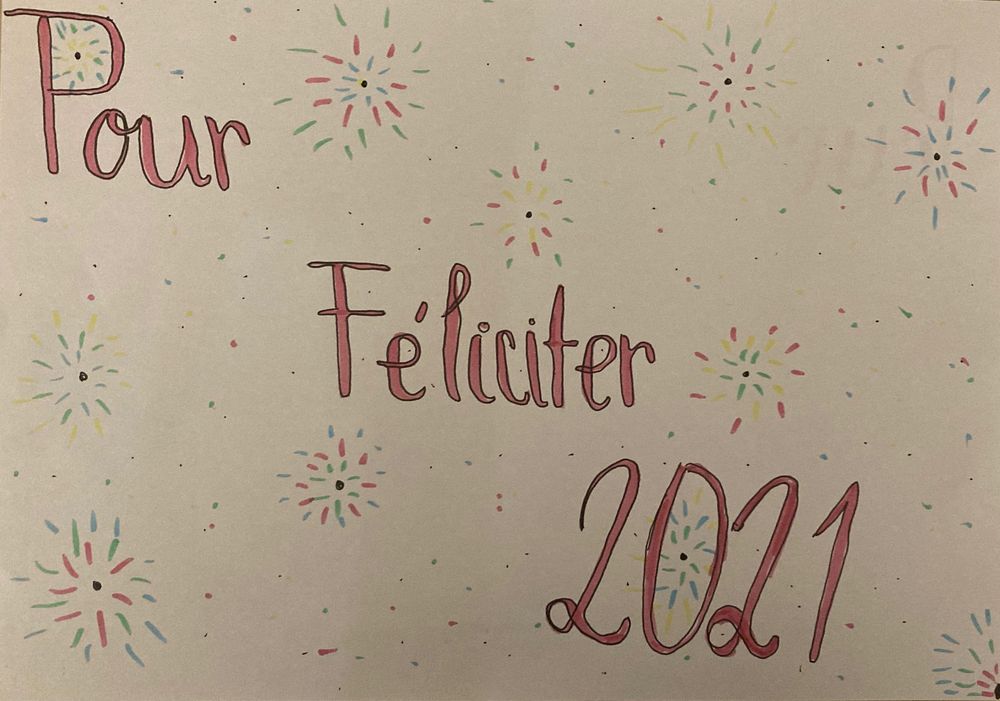 Pour
Féliciter
2021